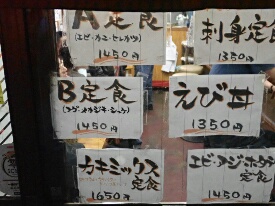 A定食
(エビ・カニ・ヒレカツ)
1450円
刺身定食
1350円
B定食
1450円
えび丼
1350円
カキミックス
定食
1650円
エビ・アジ・ホタテ
定食
1450円